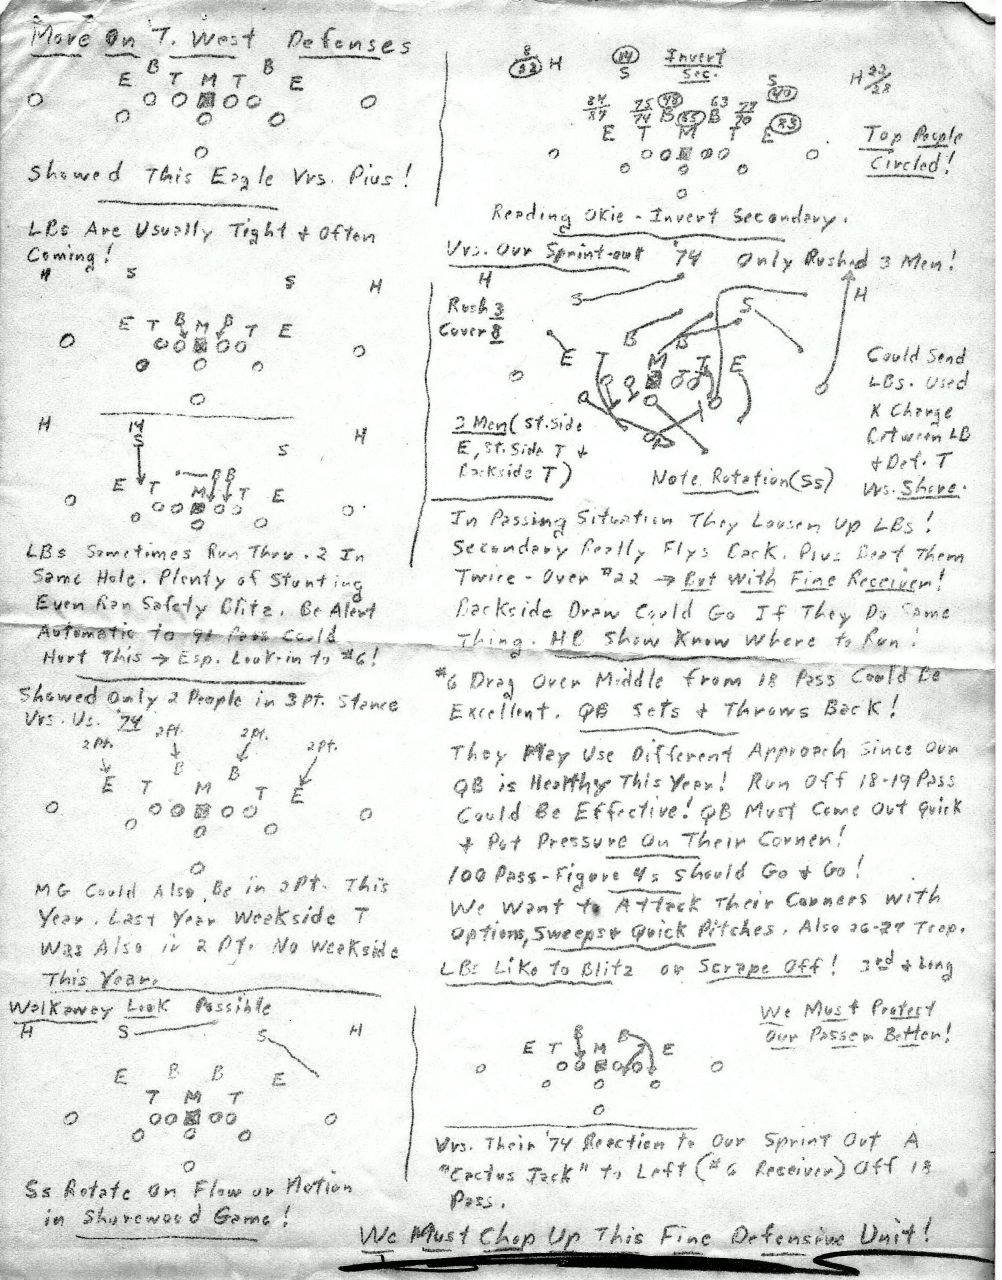 More On T. West Defenses
B B
E T M T E
Showed This Eagle Vrs. Pius!
LBs Are Usually Tight + Often
Coming!
H S S H
E T B M B T E
H 14 H
S S
E T M B B T E
LBs Sometimes Run Thru. 2 In
Same Hole. Plenty of Stunting
Even Ran Safety Blitz. Be Alert
Automatic to 91 Pass Could
Hurt This → Esp. Look-in to #6!
Showed Only 2 People in 3 Pt. Stance
Vrs. Us. 74
2Pt. 2Pt. 2Pt. 2Pt.
B B
E T M T E
MG Could Also Be in 2Pt. This
Year. Last Year Weekside T
Was Also in 2 Pt. No Weekside
This Year.
Walkaway Look Possible
H S S H
E B B E
T M T
Ss Rotate On Flow or Motion
in Shorewood Game!
8 14 Invert
22 H S Sec. S H 22/28
40
84/87 75/74 B 55 B 63 77/70 83
E T M T E
Top People
Circled!
Reading Okie - Invert Secondary.
Vrs. Our Sprint-out '74 Only Rushed 3 Men!
H S S H
Rush 3
Cover 8
B B
E T M T E
Could Send
LBs. Used
X Charge
Between LB
+ Def. T
Vrs. Shore.
3 Men (St. Side
E, St. Side T +
Backside T)
Note Rotation (Ss)
In Passing Situation They Loosen Up LBs!
Secondary Really Flys Back. Pius Beat Them
Twice - Over #22 → But With Fine Receiver!
Backside Draw Could Go If They Do Same
Thing. HB Show Know Where to Run!
#6 Drag Over Middle from 18 Pass Could Be
Excellent. QB Sets + Throws Back!
They May Use Different Approach Since Our
QB is Healthy This Year! Run Off 18-19 Pass
Could Be Effective! QB Must Come Out Quick
+ Put Pressure On Their Corner!
100 Pass - Figure 4s Should Go + Go!
We Want to Attack Their Corners with
Options, Sweeps + Quick Pitches. Also 26-27 Trap.
LBs Like to Blitz or Scrape Off! 3rd + Long
We Must Protect
Our Passer Better!
B B
E T M E
Vrs. Their '74 Reaction to Our Sprint Out A
"Cactus Jack" to Left (#6 Receiver) Off 18
Pass.
We Must Chop Up This Fine Defensive Unit!